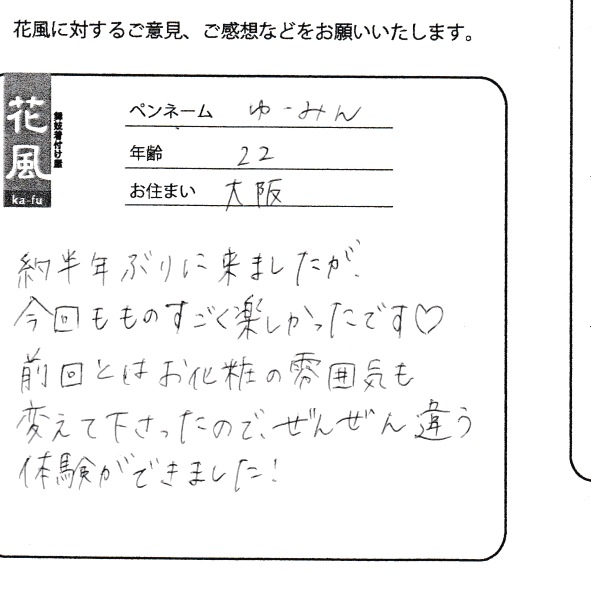 花風に対するご意見、ご感想などをお願いいたします。
花風
舞妓着付け屋
ka-fu
ペンネーム ゆーみん
年齢 22
お住まい 大阪
約半年ぶりに来ましたが、
今回もものすごく楽しかったです♡
前回とはお化粧の雰囲気も
変えて下さったので、ぜんぜん違う
体験ができました!